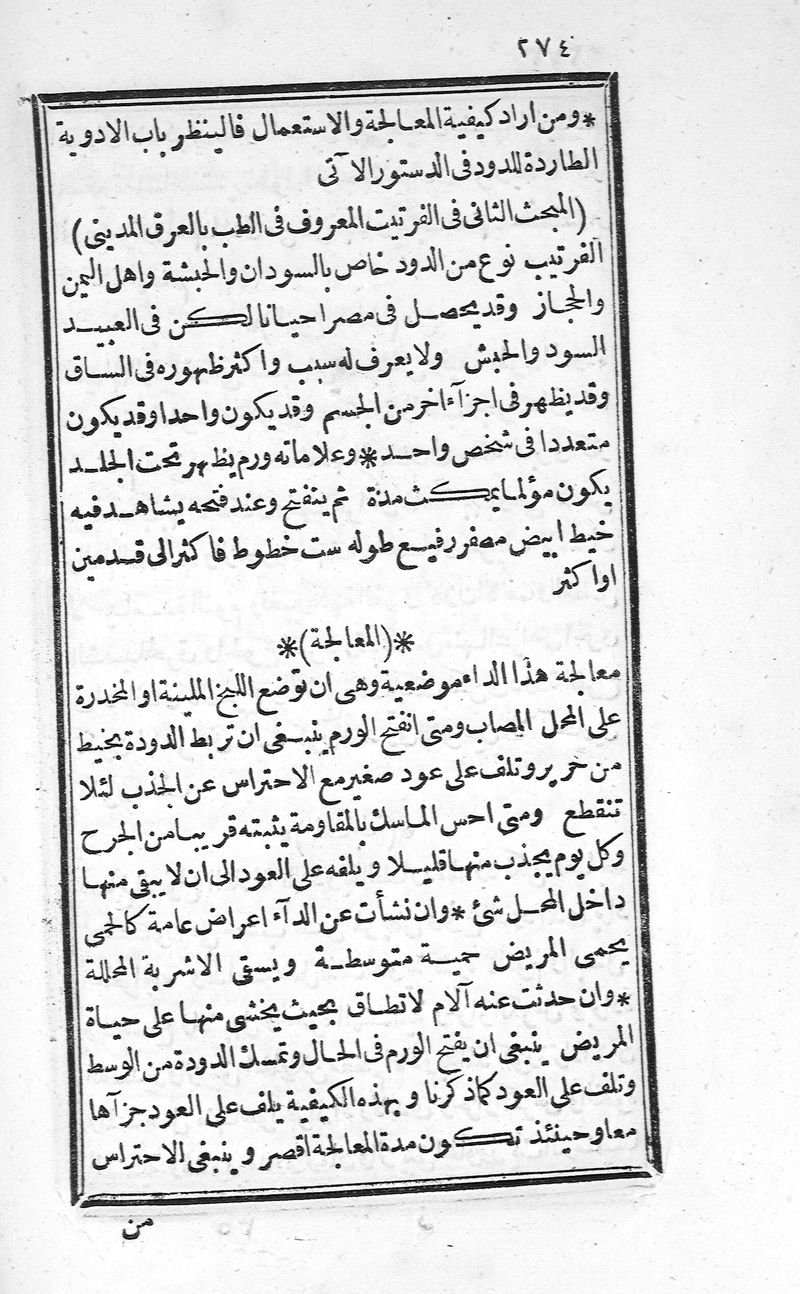 ٢٧٤
*ومن اراد كيفية المعالجة والاستعمال فالينظر باب الادوية
الطاردة للدود فى الدستور الآتى
(المبحث الثانى فى الفرتيت المعروف فى الطب بالعرق المدينى)
الفرتيب نوع من الدود خاص بالسودان والحبشة واهل اليمن
والحجاز وقد يحصل فى مصر احيانا لكن فى العبيد
السود والحبش ولا يعرف له سبب واكثر ظهوره فى الساق
وقد يظهر فى اجزآء اخر من الجسم وقد يكون واحدا وقد يكون
متعددا فى شخص واحد *وعلاماته ورم يظهر تحت الجلد
يكون مؤلما يمكث مدة ثم ينفتح وعند فتحه يشاهد فيه
خيط ابيض مصفر رفيع طوله ست خطوط فاكثر الى قدمين
او اكثر
*(المعالجة)*
معالجة هذا الداء موضعية وهى ان توضع اللبخ الملينة او المخدرة
على المحل المصاب ومتى انفتح الورم ينبغى ان تربط الدودة بخيط
من حرير وتلف على عود صغير مع الاحتراس عن الجذب لئلا
تنقطع ومتى احس الماسك بالمقاومة يثبته قريبا من الجرح
وكل يوم يجذب منها قليلا ويلفه على العود الى ان لا يبقى منها
داخل المحل شئ *وان نشأت عن الدآء اعراض عامة كالحمى
يحمى المريض حمية متوسطة ويسقى الاشربة المحللة
*وان حدثت عنه آلام لاتطاق بحيث يخشى منها على حياة
المريض ينبغى ان يفتح الورم فى الحال وتمسك الدودة من الوسط
وتلف على العود كماذكرنا وبهذه الكيفية يلف على العود جزآها
معا وحينئذ تكون مدة المعالجة اقصر وينبغى الاحتراس
من